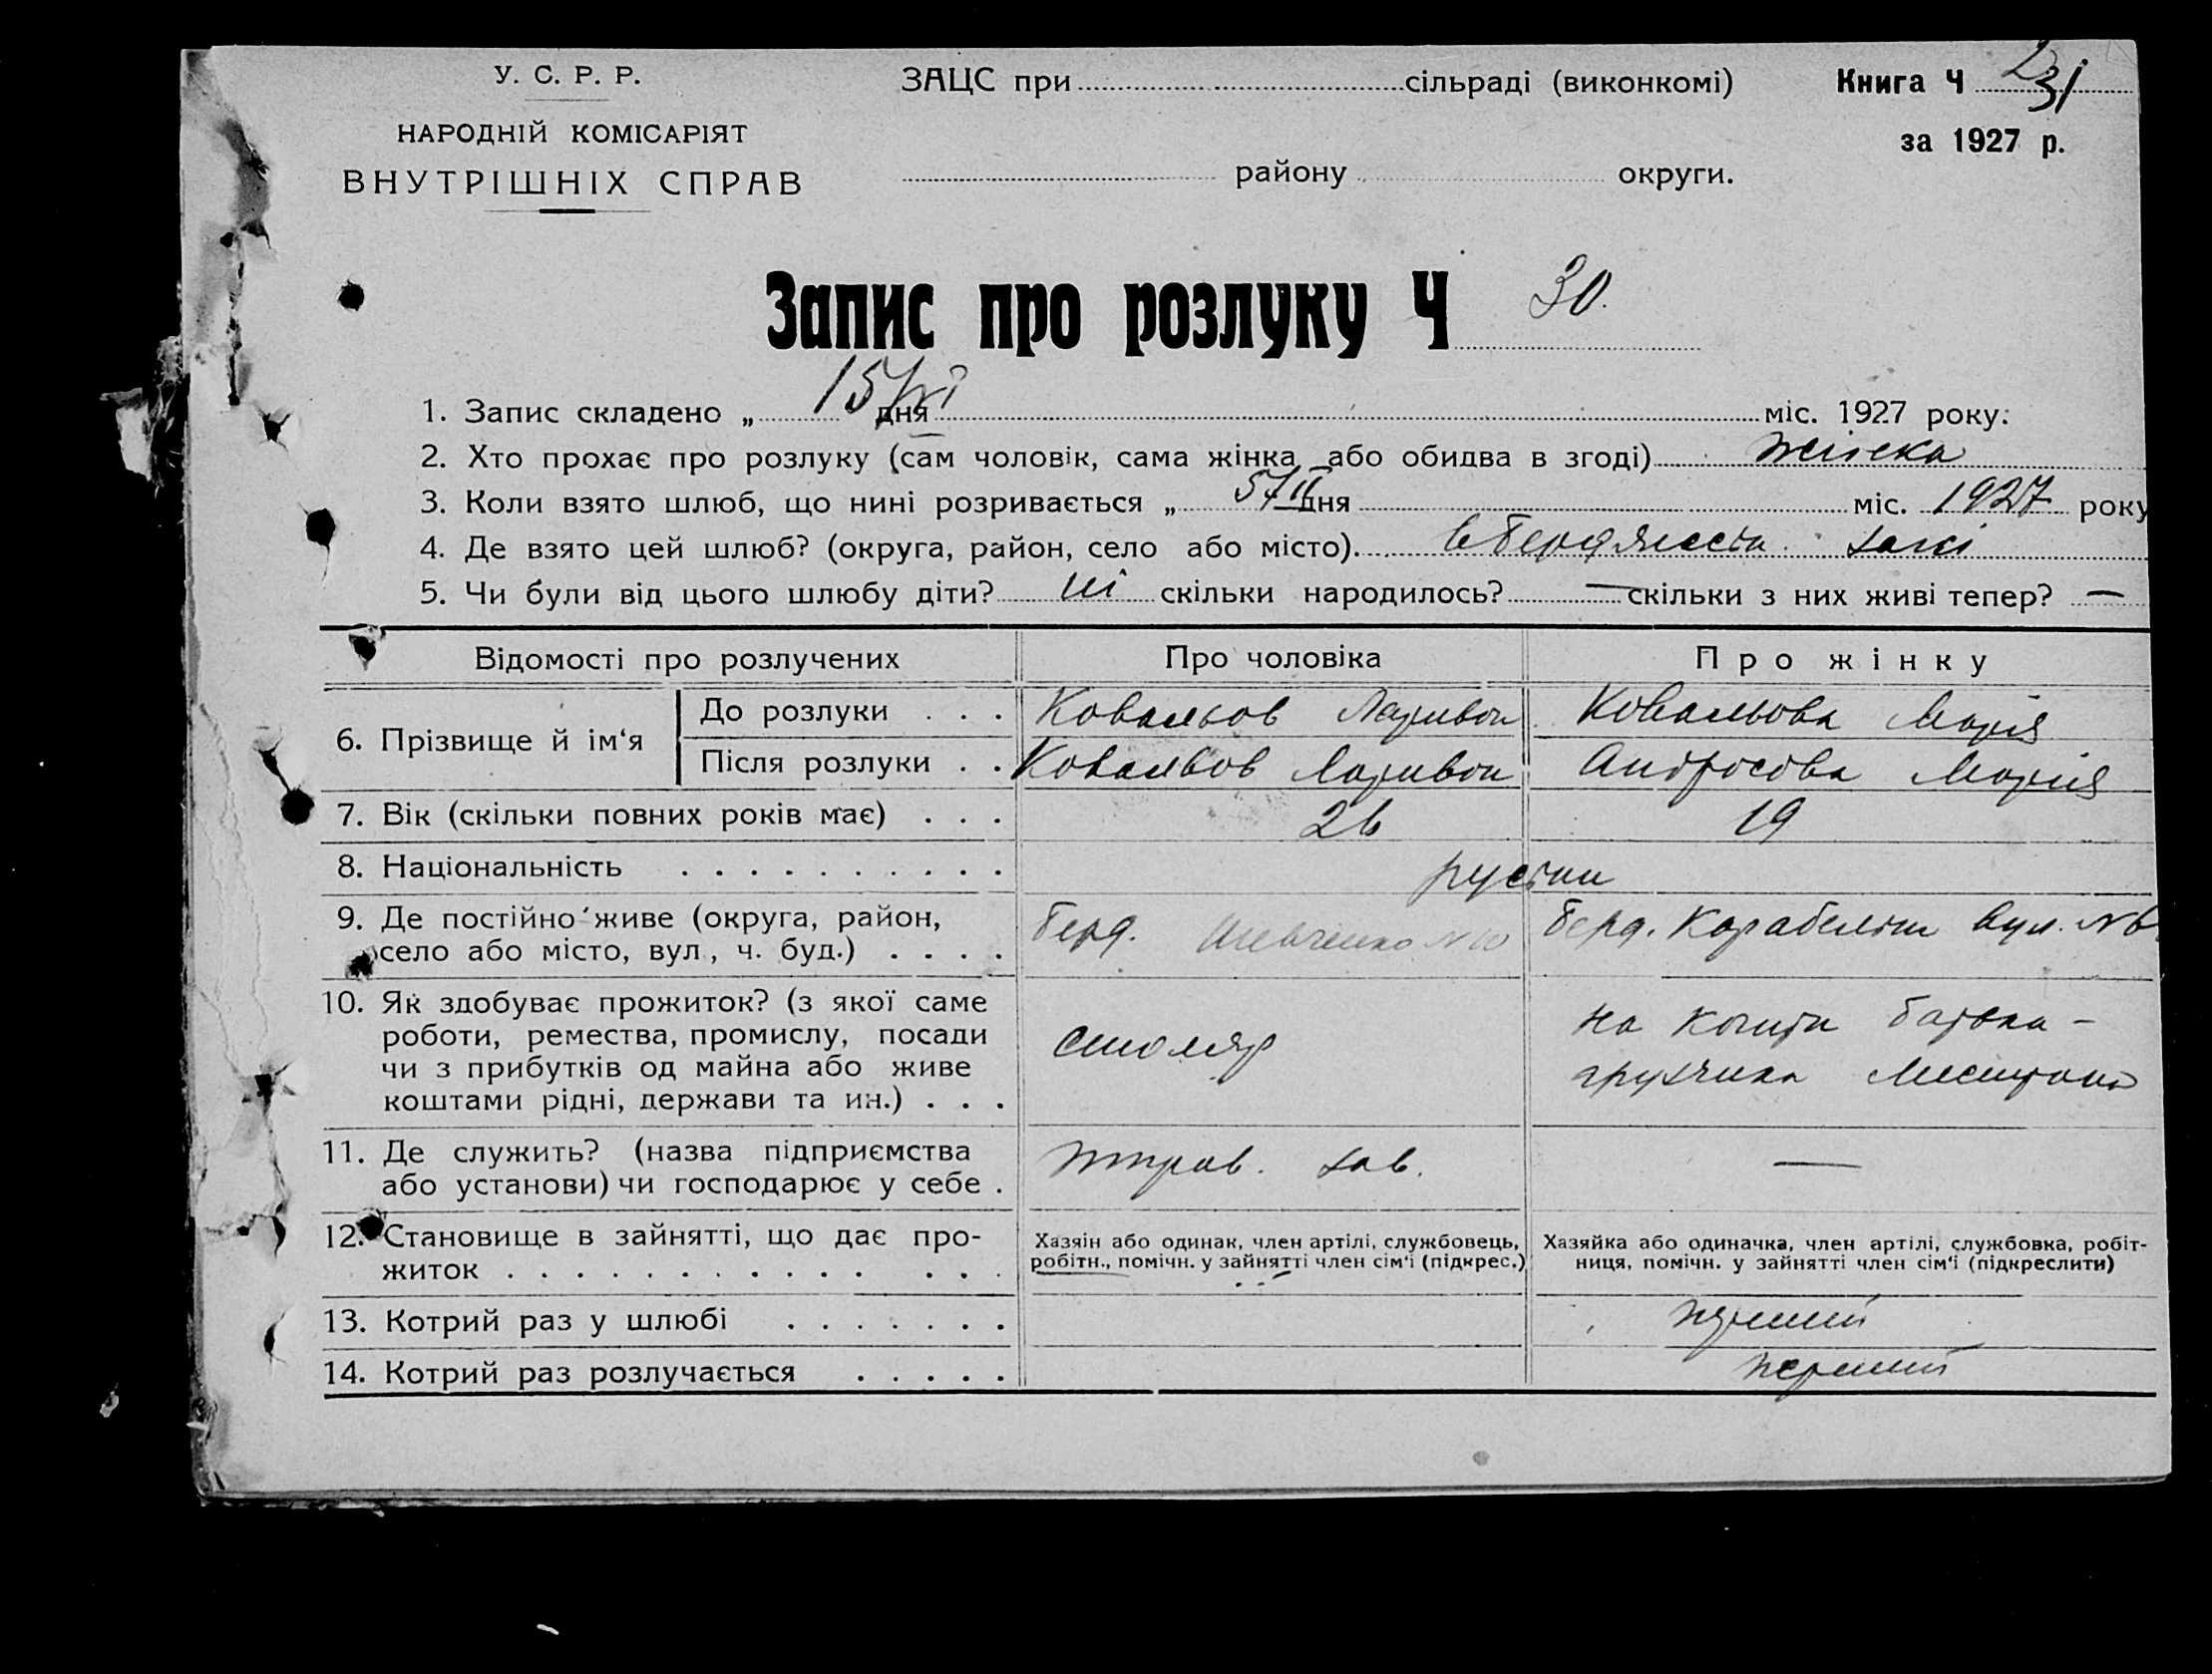 У. С. Р. Р.
НАРОДНІЙ КОМІСАРІЯТ
ВНУТРІШНІХ СПРАВ
ЗАЦС при сільраді (виконкомі)
району округи.
Книга Ч 31
за 1927 р.
Запис про розлуку Ч 30.
1. Запис складено „ 15/VI дня міс. 1927 року.
2. Хто прохає про розлуку (сам чоловік, сама жінка або обидва в згоді) жінка
3. Коли взято шлюб, що нині розривається „ 5/II дня міс. 1927 року
4. Де взято цей шлюб? (округа, район, село або місто). в Бердянськ. загсі
5. Чи були від цього шлюбу діти? ні скільки народилось? — скільки з них живі тепер? —
Відомості про розлучених Про чоловіка Про жінку
6. Прізвище й ім‘я
До розлуки . . . Ковальов Ларивон Ковальова Марія
Після розлуки . . Ковальов Ларивон Андросова Марія
7. Вік (скільки повних років має) . . . 26 19
8. Національність . . . . . . . . . . руські
9. Де постійно живе (округа, район,
село або місто, вул., ч. буд.) . . . .
Берд. Шевченко № 10
Берд. Карабельна вул. № 6
10. Як здобуває прожиток? (з якої саме
роботи, ремества, промислу, посади
чи з прибутків од майна або живе
коштами рідні, держави та ин.) . . .
столяр
на кошти батька -
грузчика
11. Де служить? (назва підприємства
або установи) чи господарює у себе .
зав.
—
12. Становище в зайнятті, що дає про-
житок . . . . . . . . . . . . . . .
Хазяін або одинак, член артілі, службовець,
робітн., помічн. у зайнятті член сім‘ї (підкрес.)
Хазяйка або одиначка, член артілі, службовка, робіт-
ниця, помічн. у зайнятті член сім‘ї (підкреслити)
13. Котрий раз у шлюбі . . . . . . . перший
14. Котрий раз розлучається . . . . . перший